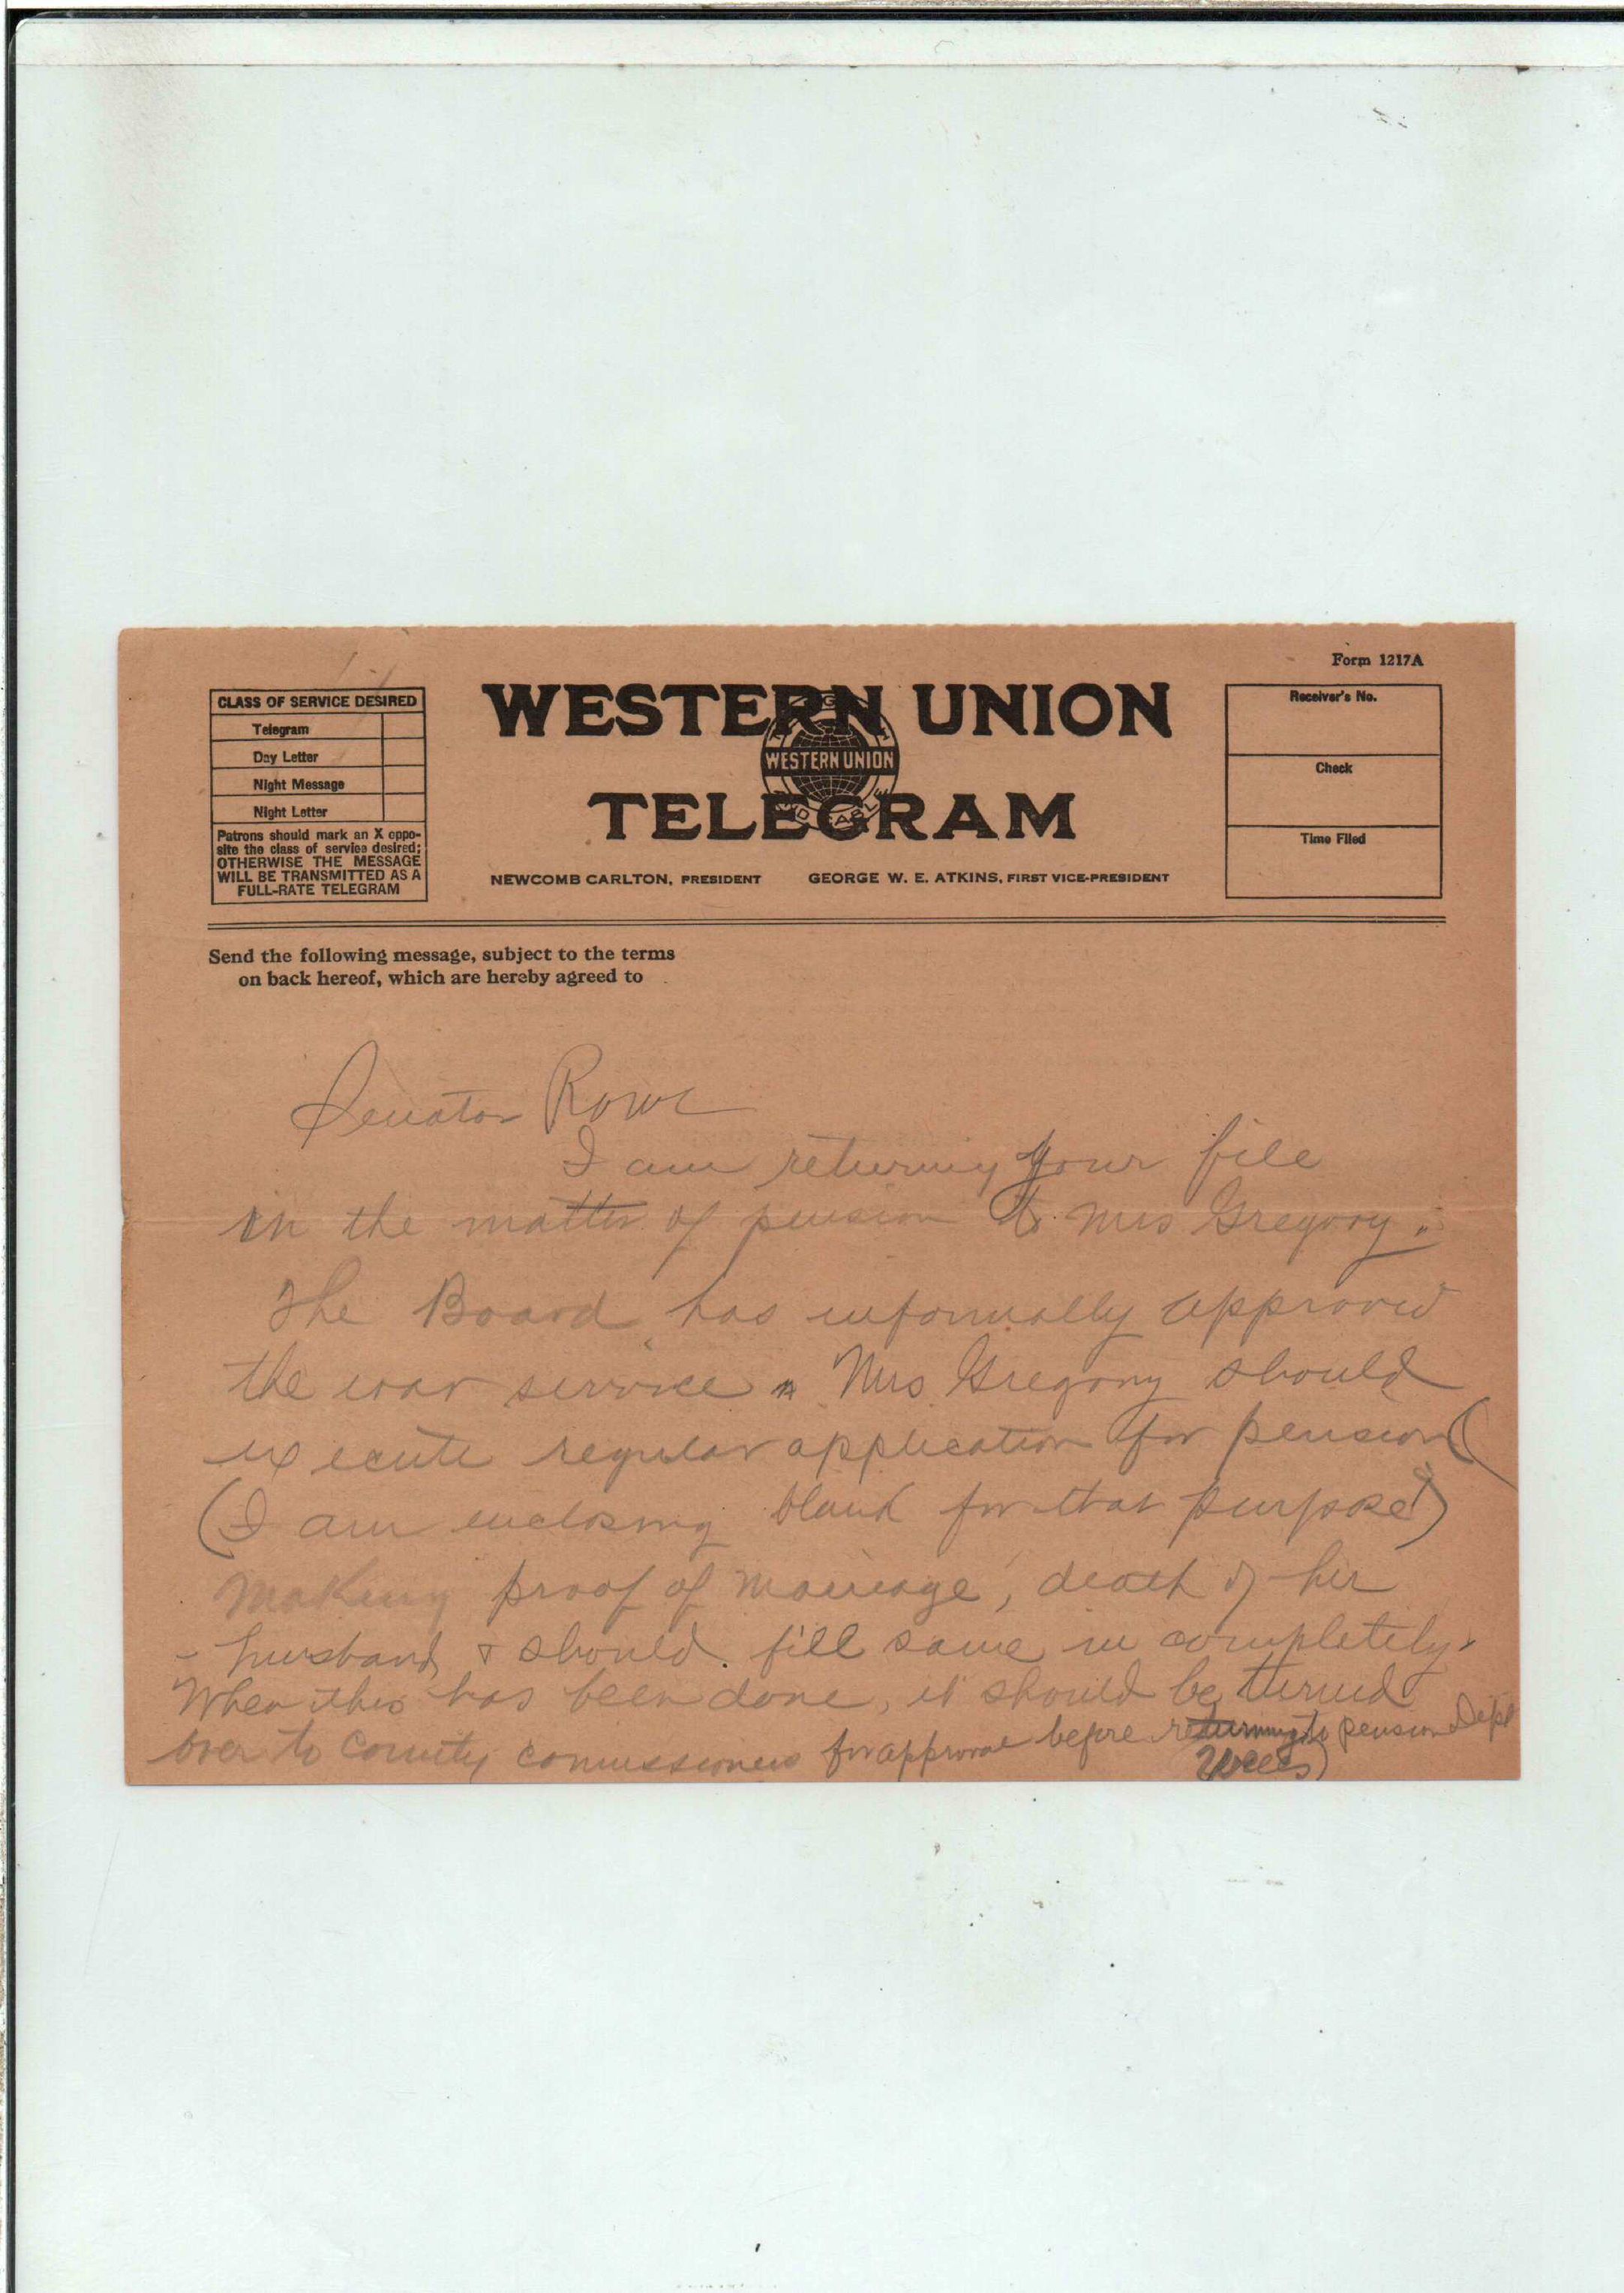 Form 1217A
CLASS OF SERVICE DESIRED
Telegram
Day Letter
Night Message
Night Letter
Patrons should mark an X oppo-
site the class of service desired;
OTHERWISE THE MESSAGE
WILL BE TRANSMITTED AS A
FULL-RATE TELEGRAM
WESTERN UNION
WESTERN UNION
TELEGRAM
NEWCOMB CARLTON, PRESIDENT GEORGE W. E. ATKINS, FIRST VICE-PRESIDENT
Receiver's No.
Check
Time Filed
Send the following message, subject to the terms
on back hereof, which are hereby agreed to
Senator Rowe
I am returning your file
in the matter of pension to Mrs Gregory.
The Board has informally approved
the war service. Mrs Gregory should
execute regular application for pension
(I am enclosing blank for that purpose)
making proof of marriage, death of her
husband & should fill same in completely.
When this has been done, it should be turned
over to County commissioners for approval before returning to pension Dept